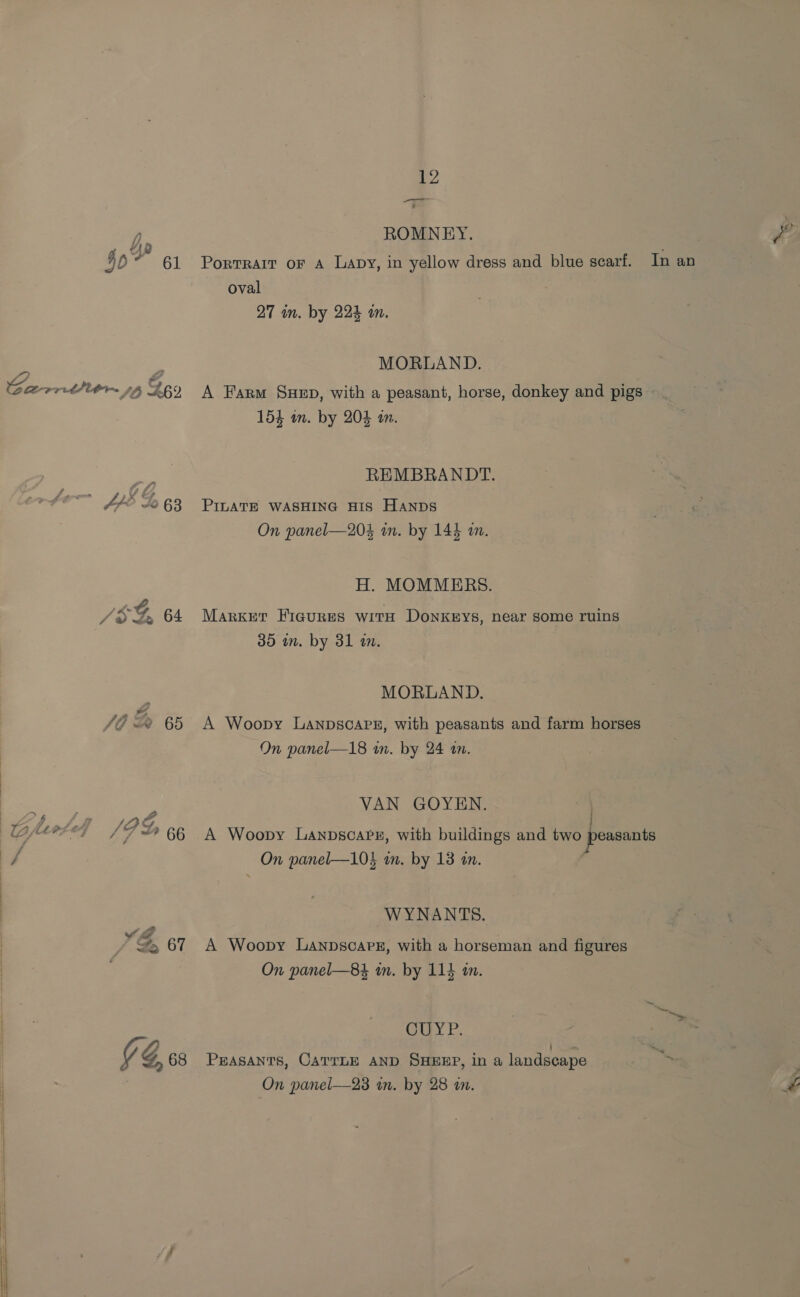 12
ROMNEY.
61 PORTRAIT OF A LADY, in yellow dress and blue scarf. In an
oval
27 in. by 22½ in.
MORLAND.
62 A FARM SHED, with a peasant, horse, donkey and pigs
15½ in. by 20½ in.
REMBRANDT.
63 PILATE WASHING HIS HANDS
On panel—20½ in. by 14½ in.
H. MOMMERS.
64 MARKET FIGURES WITH DONKEYS, near some ruins
35 in. by 31 in.
MORLAND.
65 A WOODY LANDSCAPE, with peasants and farm horses
On panel—18 in. by 24 in.
VAN GOYEN.
66 A WOODY LANDSCAPE, with buildings and two peasants
On panel—10½ in. by 13 in.
WYNANTS.
67 A WOODY LANDSCAPE, with a horseman and figures
On panel—8½ in. by 11½ in.
CUYP.
68 PEASANTS, CATTLE AND SHEEP, in a landscape
On panel—23 in. by 28 in.